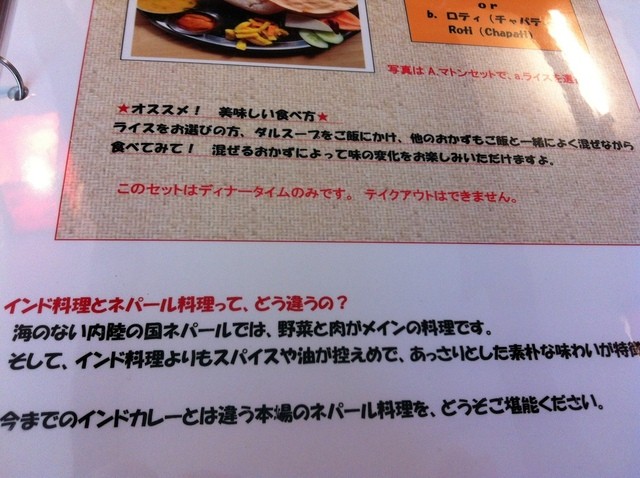 or
b. ロティ(チャパテ
Roti (Chapati)
写真は A.マトンセットで、a.ライスを選
★オススメ! 美味しい食べ方★
ライスをお選びの方、ダルスープをご飯にかけ、他のおかずもご飯と一緒によく混ぜながら
食べてみて! 混ぜるおかずによって味の変化をお楽しみいただけますよ。
このセットはディナータイムのみです。 テイクアウトはできません。
インド料理とネパール料理って、どう違うの?
海のない内陸の国ネパールでは、野菜と肉がメインの料理です。
そして、インド料理よりもスパイスや油が控えめで、あっさりとした素朴な味わいが特徴
今までのインドカレーとは違う本場のネパール料理を、どうぞご堪能ください。